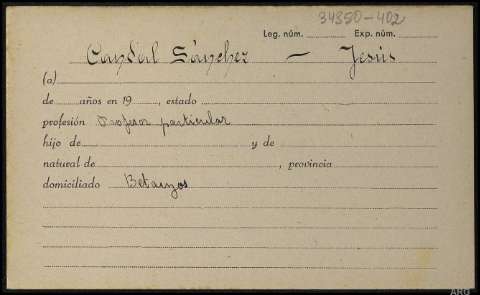 34350-402
Leg. núm. Exp. núm.
Sánchez — Jesús
(a)
de años en 19 , estado
profesión Profesor particular
hijo de y de
natural de , provincia
domiciliado Betanzos
ARG